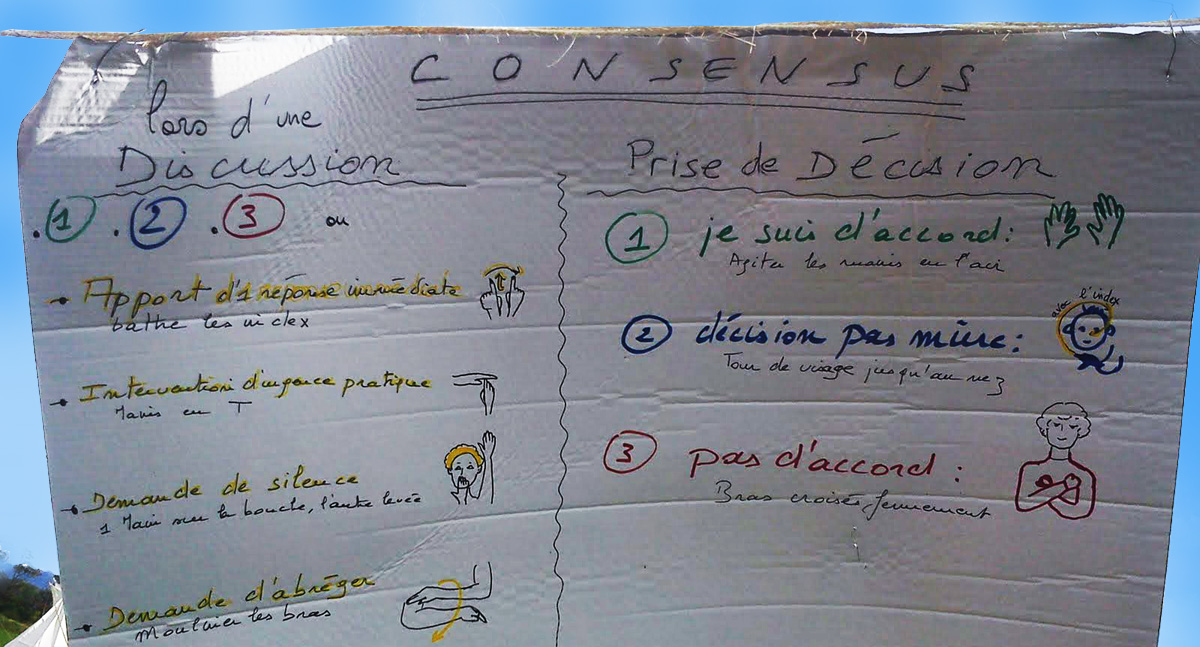 CONSENSUS
lors d'une
Discussion
.1 .2 .3 ou
Apport d'1 réponse immédiate
battre les index
Intervention d'urgence pratique
Mains en T
Demande de silence
1 Main sur la bouche, l'autre levée
Demande d'abréger
Mouliner les bras
Prise de Décision
1 je suis d'accord:
Agiter les mains en l'air
2 décision pas mûre:
Tour de visage jusqu'au nez
avec l'index
3 pas d'accord:
Bras croisés fermement